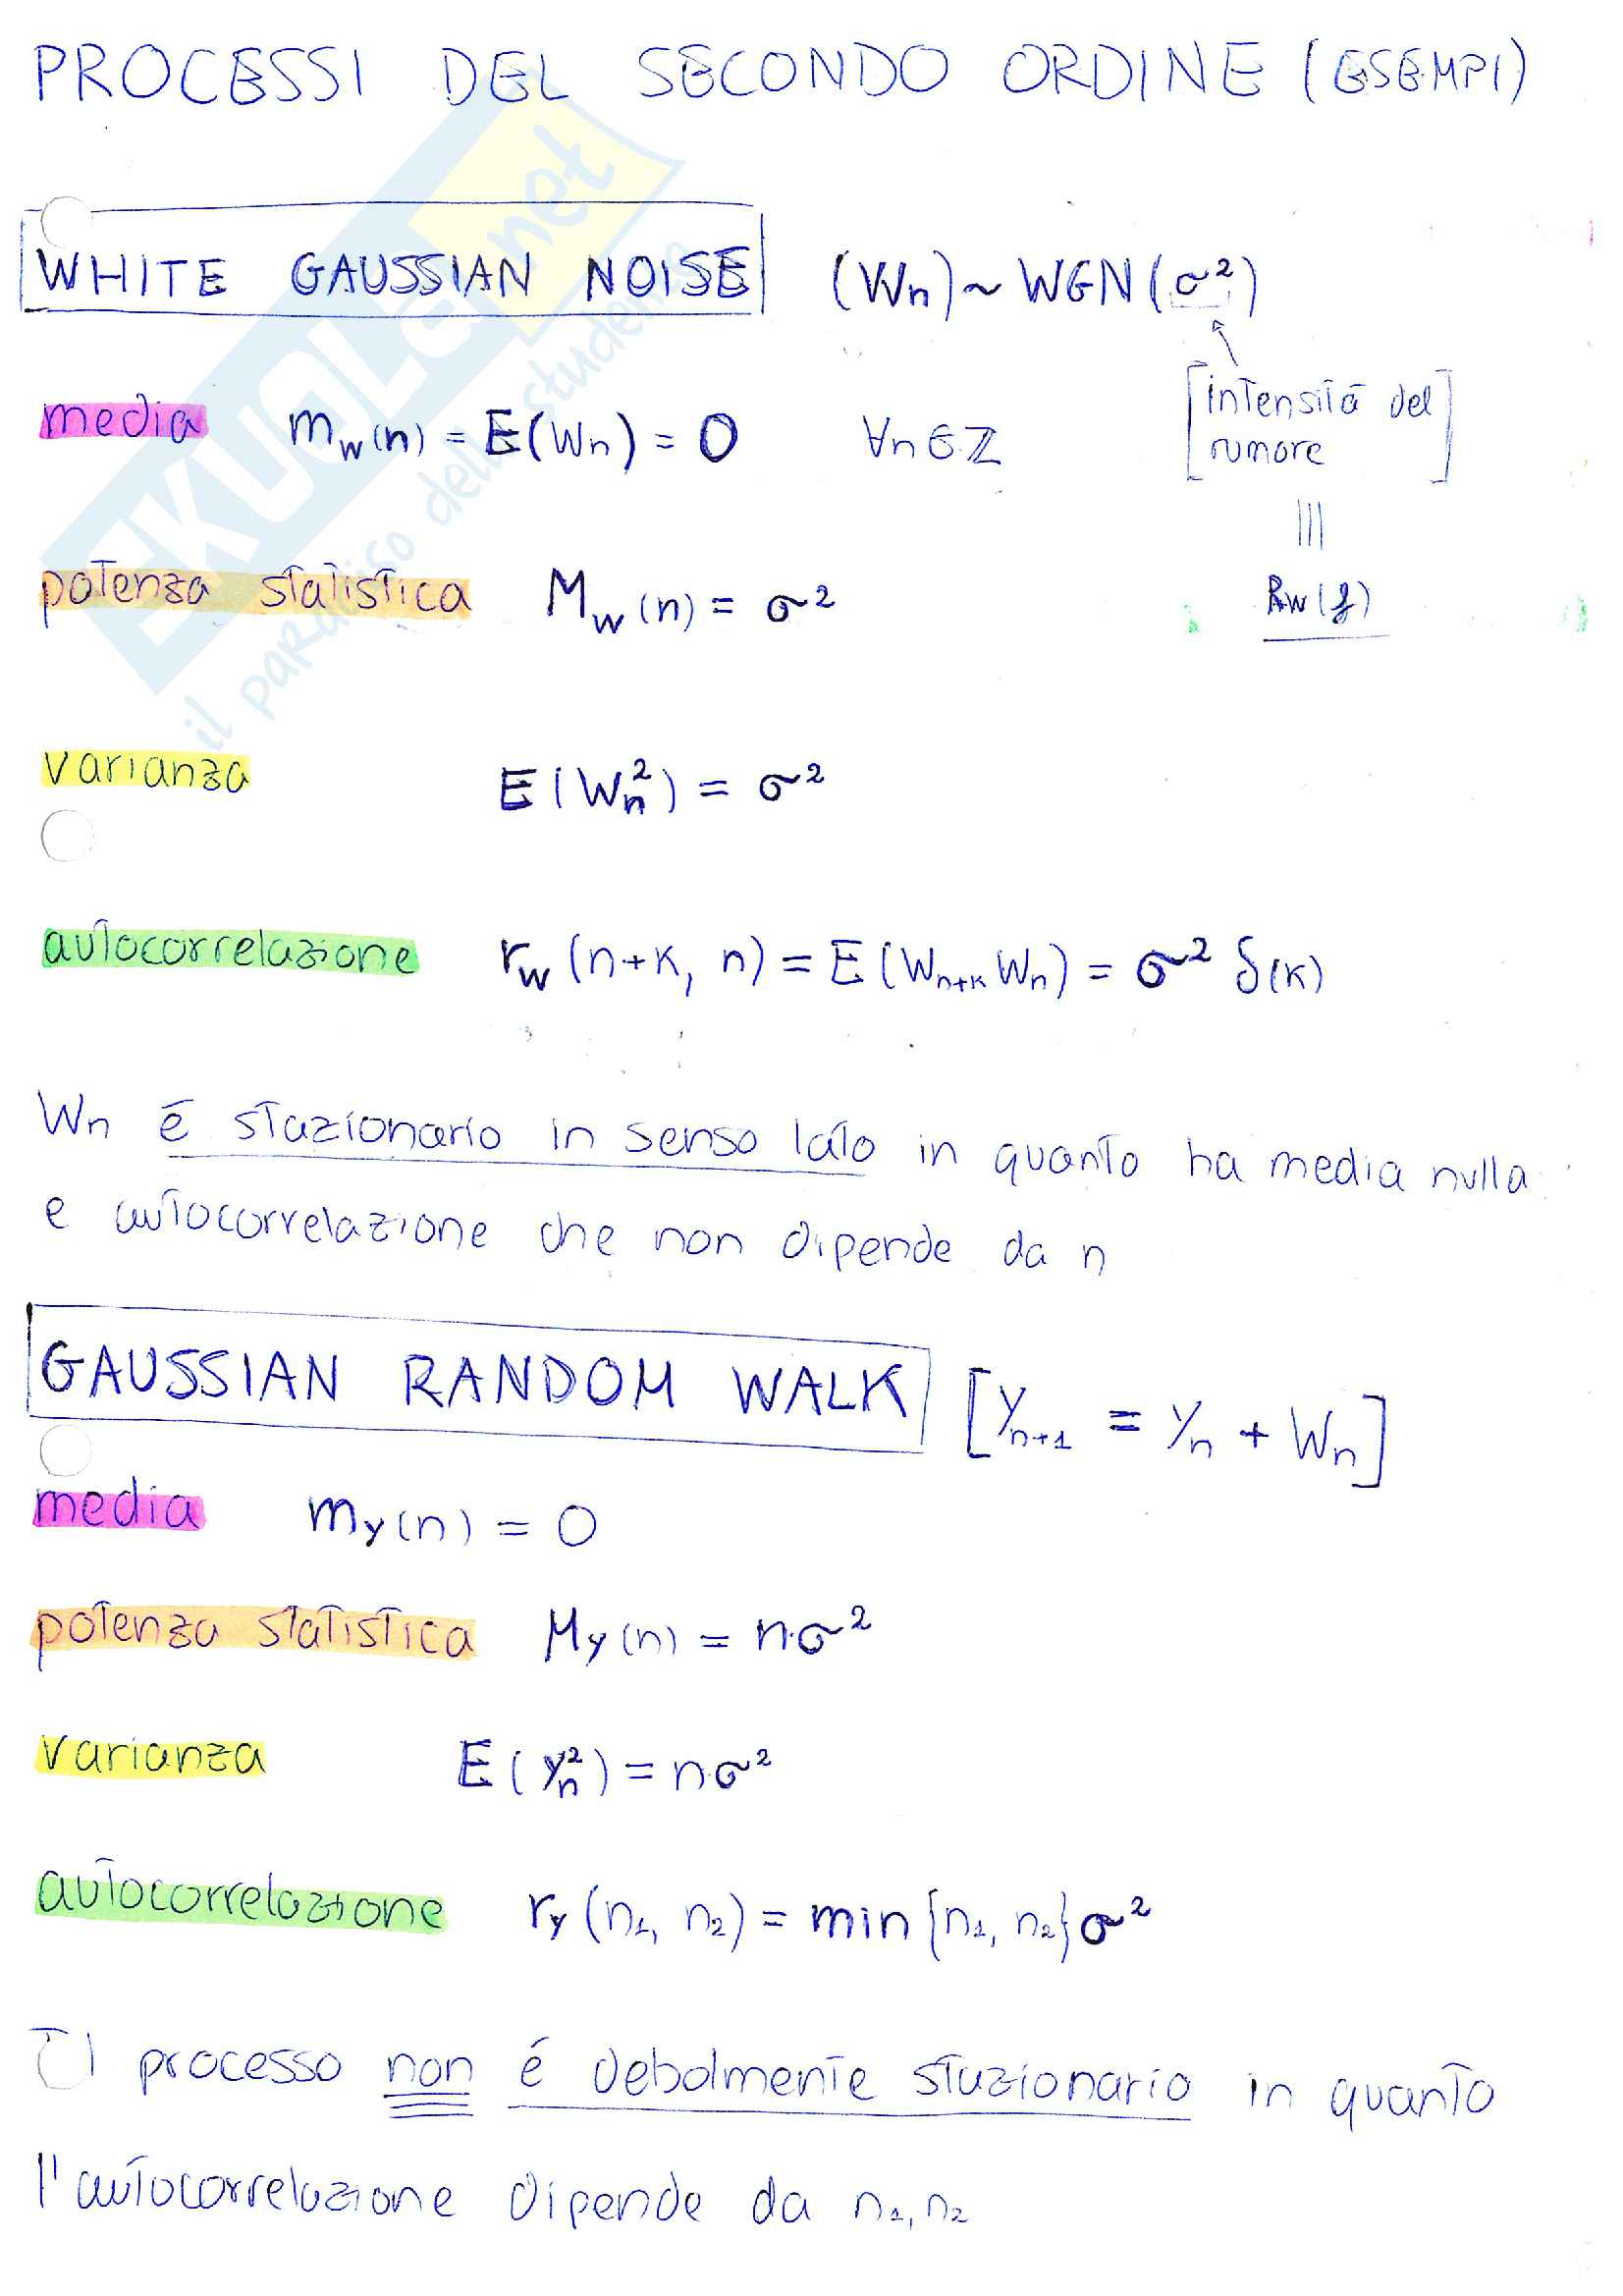 PROCESSI DEL SECONDO ORDINE (ESEMPI)
WHITE GAUSSIAN NOISE (Wn) ~ WGN(σ²)
[intensità del rumore]
|||
Rw(f)
media mw(n) = E(Wn) = 0 ∀n∈ℤ
potenza statistica Mw(n) = σ²
varianza E(Wn²) = σ²
autocorrelazione rw(n+k, n) = E(Wn+k Wn) = σ² δ(k)
Wn è stazionario in senso lato in quanto ha media nulla
e autocorrelazione che non dipende da n
GAUSSIAN RANDOM WALK [Yn+1 = Yn + Wn]
media my(n) = 0
potenza statistica My(n) = n·σ²
varianza E(Yn²) = n·σ²
autocorrelazione ry(n1, n2) = min{n1, n2}σ²
Il processo non è debolmente stazionario in quanto
l'autocorrelazione dipende da n1, n2
SKUOLA.net
il paradiso dello studente